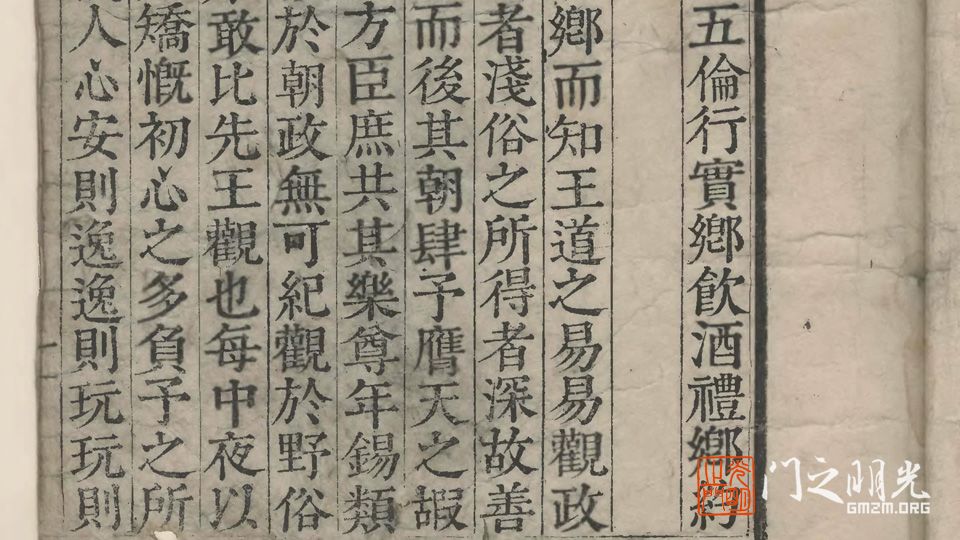 五倫行實鄉飲酒禮鄉約
鄉而知王道之易易觀政
者淺俗之所得者深故善
而後其朝肆予膺天之嘏
方臣庶共其樂尊年錫類
於朝政無可紀觀於野俗
敢比先王觀也每中夜以
矯慨初心之多負予之所
人心安則逸逸則玩玩則
门之明光
GMZM.ORG